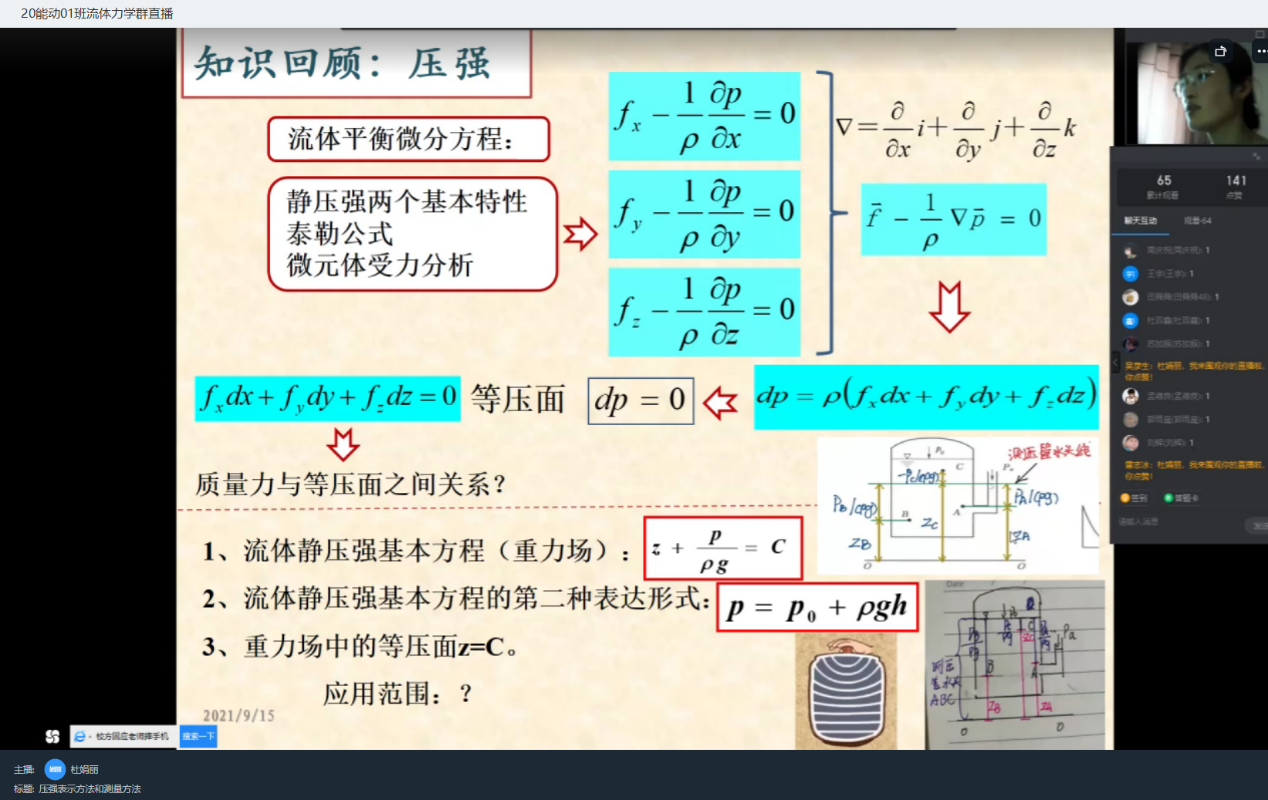 20能动01班流体力学群直播
知识回顾：压强
流体平衡微分方程：
静压强两个基本特性
泰勒公式
微元体受力分析
f_x − 1/ρ ∂p/∂x = 0
f_y − 1/ρ ∂p/∂y = 0
f_z − 1/ρ ∂p/∂z = 0
∇=∂/∂x i+∂/∂y j+∂/∂z k
f⃗ − 1/ρ ∇p⃗ = 0
f_x dx + f_y dy + f_z dz = 0
等压面
dp = 0
dp = ρ(f_x dx + f_y dy + f_z dz)
质量力与等压面之间关系？
测压管水头线
P_B/(ρg)
P_C/(ρg)
P_A/(ρg)
C
B
A
Z_B
Z_C
Z_A
O
O
1、流体静压强基本方程（重力场）：
z + p/ρg = C
2、流体静压强基本方程的第二种表达形式：
p = p_0 + ρgh
3、重力场中的等压面z=C。
应用范围：？
2021/9/15
Date
Pa
B
A
ABC
O
O
校方回应老师摔手机
搜索一下
65
累计观看
141
点赞
聊天互动
观看·64
1
1
1
1
1
杜娟丽，我来围观你的直播啦，
你点赞！
1
1
1
杜娟丽，我来围观你的直播啦，
你点赞！
签到
答题卡
请输入消息
发送
主播:
杜娟丽
标题: 压强表示方法和测量方法